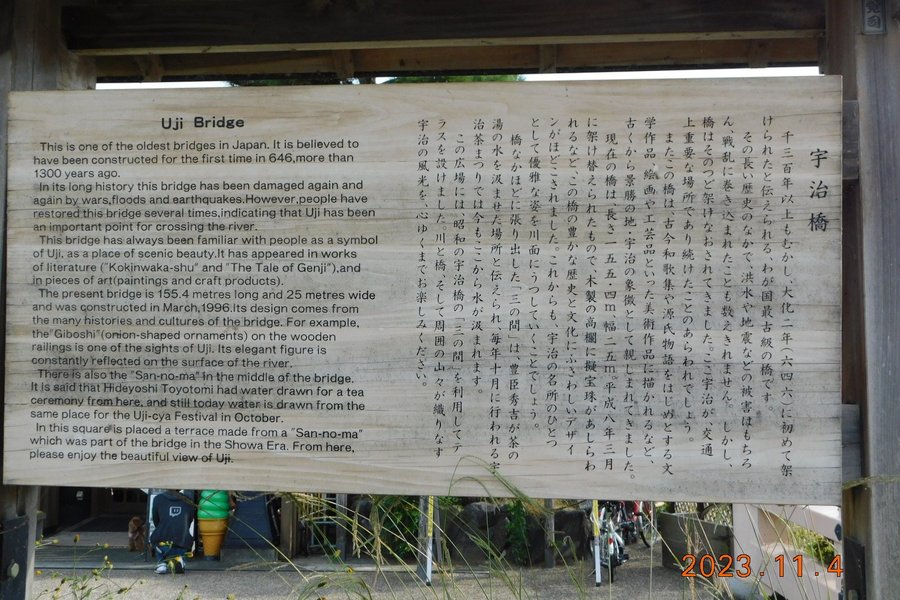 Uji Bridge
This is one of the oldest bridges in Japan. It is believed to
have been constructed for the first time in 646,more than
1300 years ago.
In its long history this bridge has been damaged again and
again by wars,floods and earthquakes.However,people have
restored this bridge several times,indicating that Uji has been
an important point for crossing the river.
This bridge has always been familiar with people as a symbol
of Uji, as a place of scenic beauty.It has appeared in works
of literature ("Kokinwaka-shu" and "The Tale of Genji"),and
in pieces of art(paintings and craft products).
The present bridge is 155.4 metres long and 25 metres wide
and was constructed in March,1996.Its design comes from
the many histories and cultures of the bridge. For example,
the"Giboshi"(onion-shaped ornaments) on the wooden
railings is one of the sights of Uji. Its elegant figure is
constantly reflected on the surface of the river.
There is also the "San-no-ma" in the middle of the bridge.
It is said that Hideyoshi Toyotomi had water drawn for a tea
ceremony from here, and still today water is drawn from the
same place for the Uji-cya Festival in October.
In this square is placed a terrace made from a "San-no-ma"
which was part of the bridge in the Showa Era. From here,
please enjoy the beautiful view of Uji.
宇治橋
千三百年以上もむかし、大化二年(六四六)に初めて架
けられたと伝えられる、わが国最古級の橋です。
その長い歴史のなかで、洪水や地震などの被害はもちろ
ん、戦乱に巻き込まれたことも数えきれません。しかし、
橋はそのつど架けなおされてきました。ここ宇治が、交通
上重要な場所であり続けたことのあらわれでしょう。
またこの橋は、古今和歌集や源氏物語をはじめとする文
学作品、絵画や工芸品といった美術作品に描かれるなど、
古くから景勝の地、宇治の象徴として親しまれてきました。
現在の橋は長さ一五五・四m、幅二五m、平成八年三月
に架け替えられたもので、木製の高欄に擬宝珠があしらわ
れるなど、この橋の豊かな歴史と文化にふさわしいデザイ
ンがほどこされました。これからも、宇治の名所のひとつ
として優雅な姿を川面にうつしていくことでしょう。
橋なかほどに張り出した「三の間」は、豊臣秀吉が茶の
湯の水を汲ませた場所と伝えられ、毎年十月に行われる宇
治茶まつりでは今もここから水が汲まれます。
この広場には、昭和の宇治橋の「三の間」を利用してテ
ラスを設けました。川と橋、そして周囲の山々が織りなす
宇治の風光を、心ゆくまでお楽しみください。
2023.11.4